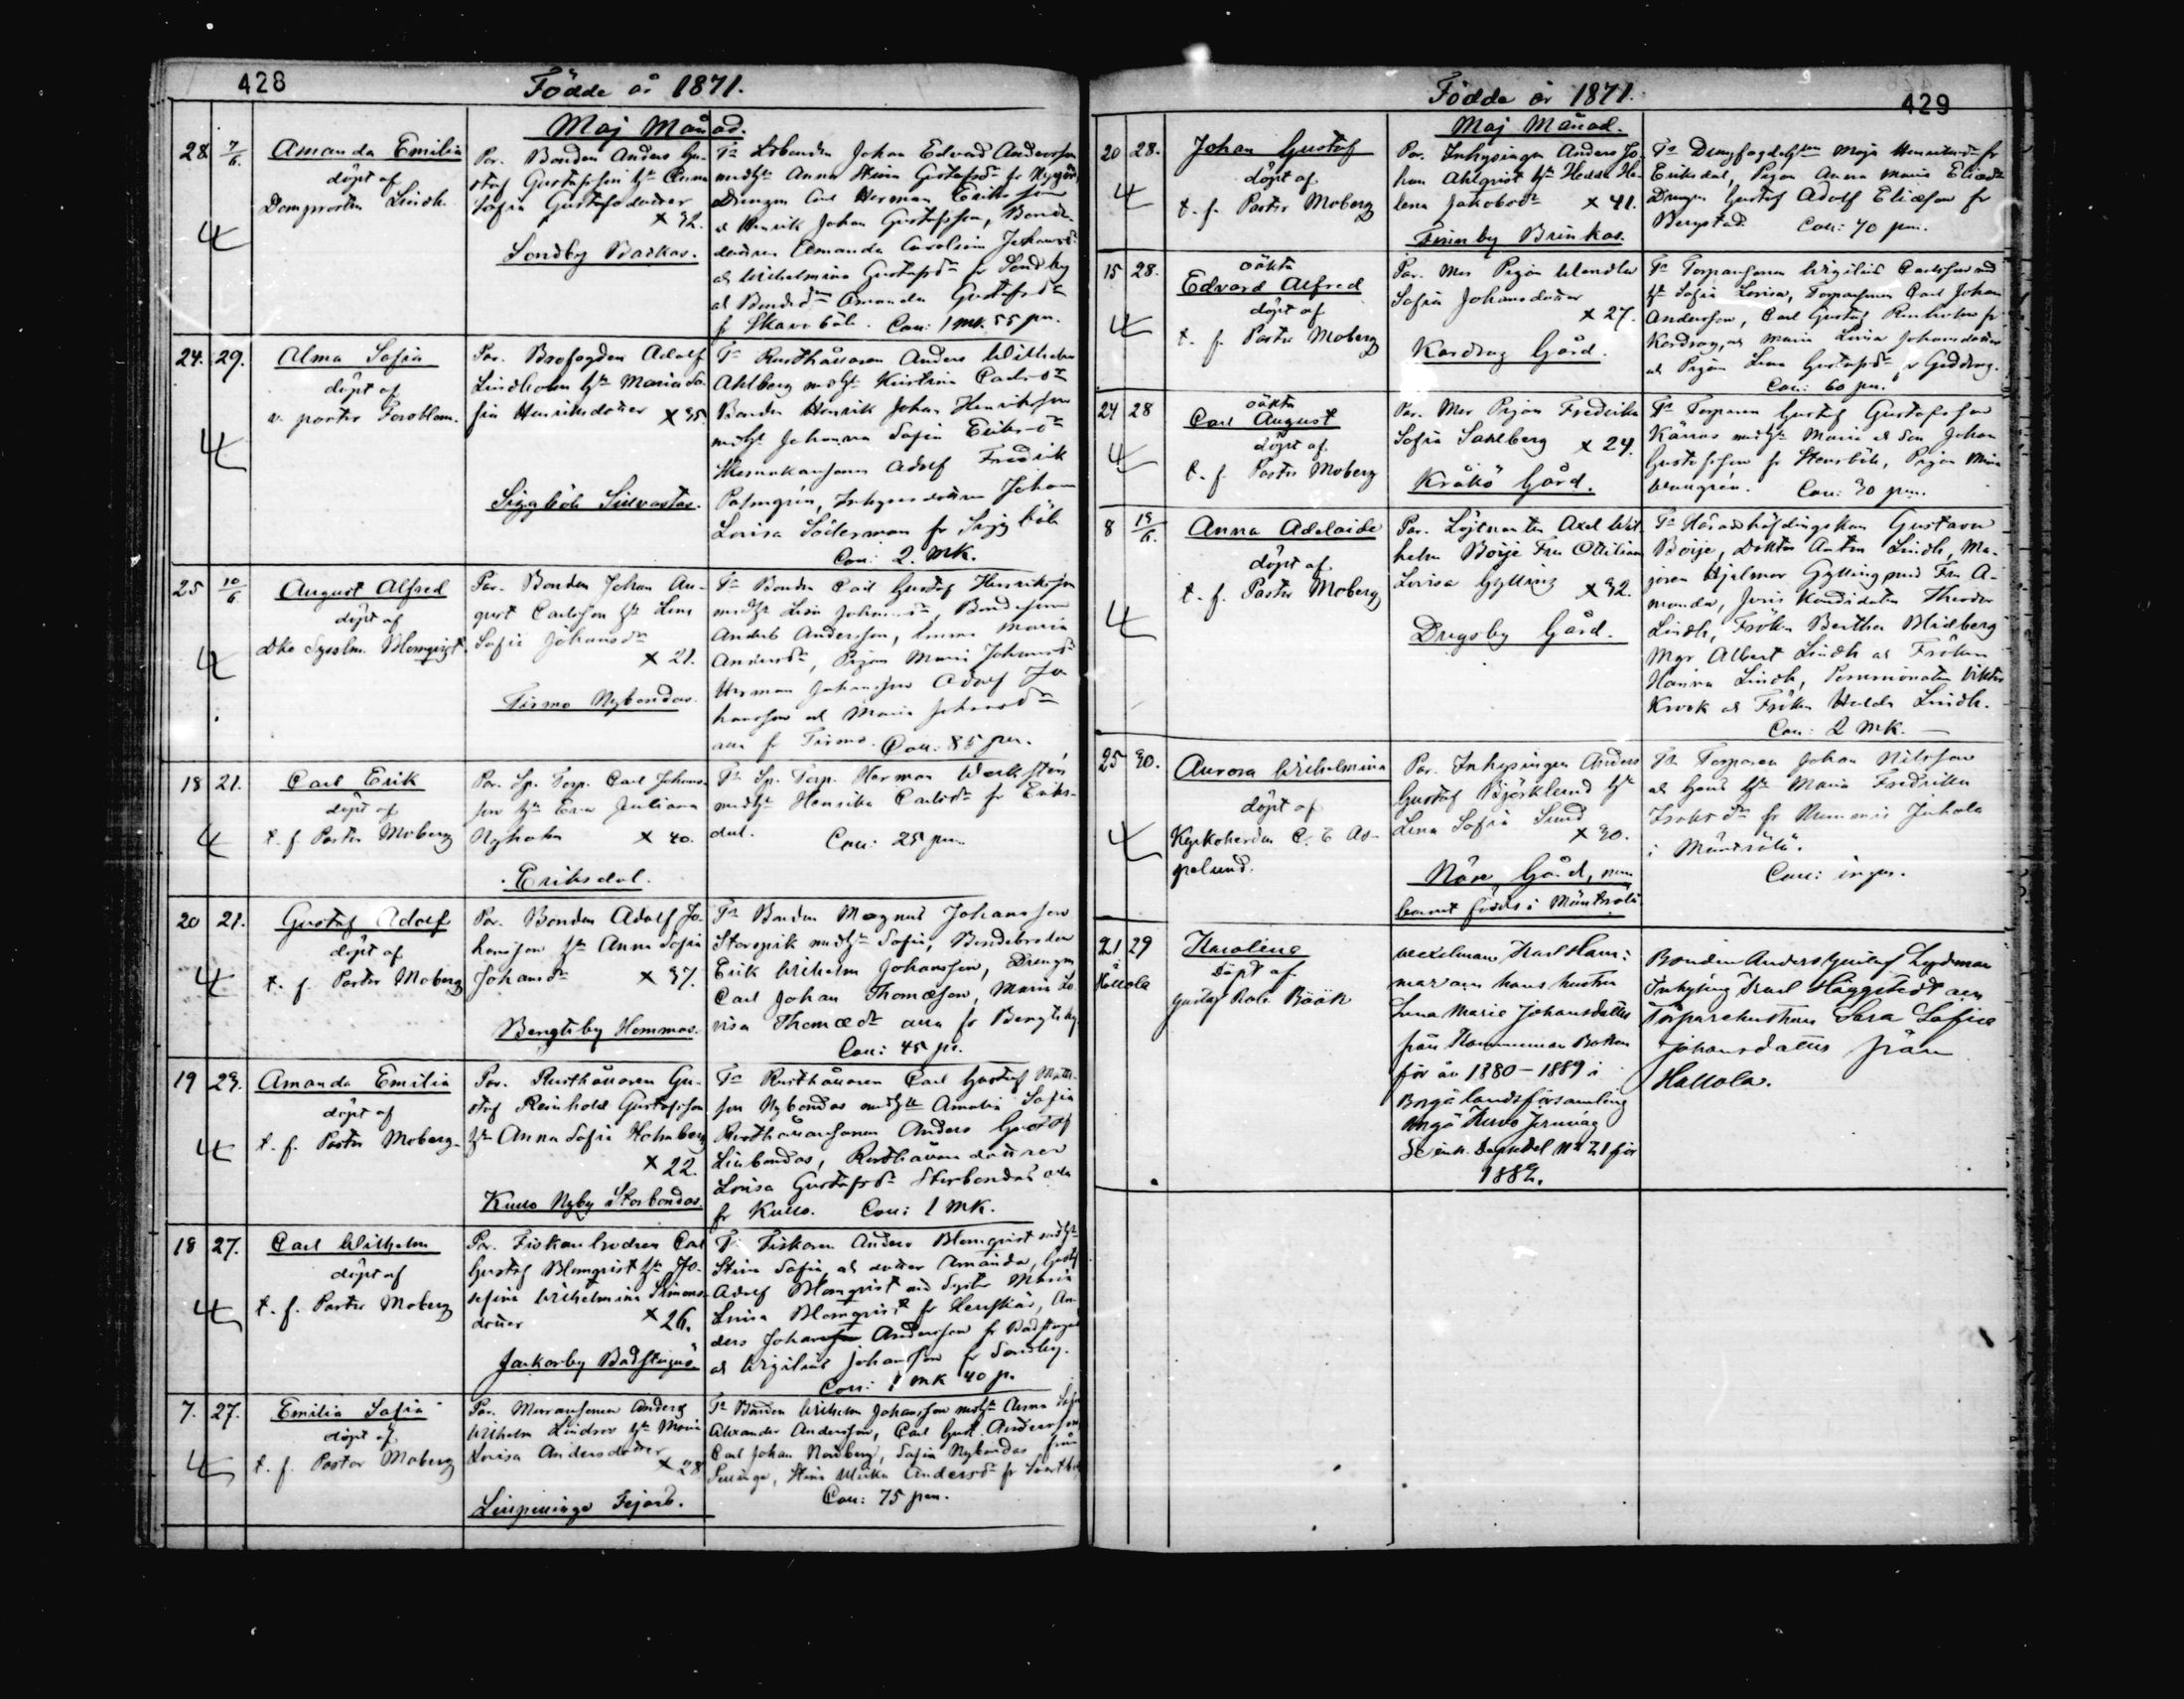 428
Födde år 1871.
Maj Månad.
28. 7/6.
Amanda Emilia
döpt af
Domprosten Lindh.
Par. Bonden Anders Gu-
staf Gustafsson hn Anna
Sofia Gustafsdotter
x 32.
Sondby Backas.
Tn Lbonden Johan Edvard Andersson
medhn Anna Stina Gustafsdn fr Nygård
Drengen Carl Herman Eriksson
ch Henrik Johan Gustafsson, Bonde-
dottren Amanda Carolina Johansdn
ch Wilhelmina Gustafsdn fr Sondby
ch Bondedn Amanda Gustafsdn
fr Skavböle. Coll: 1 mk. 55 pn.
24. 29.
Alma Sofia
döpt af
v. pastor Forsblom.
Par. Brofogden Adolf
Lindholm hn Maria So-
fia Henriksdotter x 35.
Siggböle Silvastas.
Tn Rusthållaren Anders Wilhelm
Ahlberg medhn Kristina Carlsdn
Bonden Henrik Johan Henriksson
medhn Johanna Sofia Eriksdn
Adolf Fredrik
Palmgrén, Inhysesdottren Johanna
Lovisa Söderman fr Siggböle
Coll: 2. mk.
25 10/6
August Alfred
döpt af
Dke Sysslm. Blomqvist.
Par. Bonden Johan Au-
gust Carlsson hn Lena
Sofia Johansdn
x 21.
Tirmo Nybondas.
Tn Bonden Carl Gustaf Henriksson
medhn Lisa Johansdn, Bondesonen
Anders Andersson, Emma Maria
Andersdn, Pigan Maria Johansdn
Herman Johansson Adolf Jo-
hansson ch Maria Johansdn
alla fr Tirmo. Coll: 85 pn.
18 21.
Carl Erik
döpt af
t. f. Pastor Moberg
Par. Sp. Torp. Carl Johans-
son hn Eva Juliana
Nyholm x 40.
Eriksdal.
Tn Sp. Torp. Herman Werksten
medhn Henrika Carlsdn fr Eriks-
dal.
Coll: 25 pn.
20 21.
Gustaf Adolf
döpt af
t. f. Pastor Moberg
Par. Bonden Adolf Jo-
hansson hn Anna Sofia
Johansdn x 37.
Bengtsby Hommas.
Tn Bonden Magnus Johansson
Storspik medhn Sofia, Bondebroder
Erik Wilhelm Johansson, Drengen
Carl Johan Thomasson, Maria Lo-
visa Thomædn alla fr Bengtsby.
Coll: 45 pn.
19 29.
Amanda Emilia
döpt af
t. f. Pastor Moberg.
Par. Rusthållaren Gu-
staf Reinhold Gustafsson
hn Anna Sofia Holmberg
x 22.
Kullo Nyby Storbondas.
Tn Rusthållaren Carl Gustaf Matts-
son Nybondas medhn Amalia Sofia
Rusthållaresonen Anders Gustaf
Lillbondas, Rusthållaredottren
Lovisa Gustafsdn Storbondas alla
fr Kullo. Coll: 1 mk.
18 27.
Carl Wilhelm
döpt af
t. f. Pastor Moberg
Par. Fiskarebrodren Carl
Gustaf Blomqvist hn Jo-
sefina Wilhelmina Simons-
dotter x 26.
Jackarby Badstugus
Tn Fiskaren Anders Blomqvist medhn
Stina Sofia, ch dotter Amanda, Gustaf
Adolf Blomqvist med Syster Maria
Lovisa Blomqvist fr Herrskär, An-
ders Johan Andersson fr Badstugus
ch Wigilius Johansson fr Sondby.
Coll: 1 mk 40 p.
7. 27.
Emilia Sofia
döpt af
t. f. Pastor Moberg
Par. Muraresonen Anders
Wilhelm Lindroos hn Maria
Lovisa Andersdotter
x 28
Lillpellinge Fejarb.
Tn Bonden Wilhelm Johansson medhn Anna Sofia
Alexander Andersson, Carl Gust. Andersson,
Carl Johan Nordberg, Sofia Nybondas från
Pellinge, Stina Ulrika Andersdn fr Svartbäck
Coll: 75 pn.
429
Födde år 1871.
Maj Månad.
20 28.
Johan Gustaf
döpt af
t. f. Pastor Moberg
Par. Inhysingen Anders Jo-
han Ahlqvist hn Hedda He-
lena Jakobsdn x 41.
Finnby Brinkas.
Tn Drengfogdehn Maja Henriksdn fr
Eriksdal, Pigan Anna Maria Eliædn
Drengen Gustaf Adolf Eliæson fr
Bergstad. Coll: 70 pn.
15 28.
oäkta
Edvard Alfred
döpt af
t. f. Pastor Moberg
Par. Mor Pigan Wendla
Sofia Johansdotter
x 27.
Kardrag Gård.
Tn Torparsonen Wigilius Carlsson med
hn Sofia Lovisa, Torparsonen Carl Johan
Andersson, Carl Gustaf Renholm fr
Kardrag, ch Maria Lovisa Johansdotter
ch Pigan Lena Gustafsdn fr Geddrag.
Coll: 60 pn.
24 28
oäkta
Carl August
döpt af
t. f. Pastor Moberg
Par. Mor Pigan Fredrika
Sofia Sahlberg x 24.
Kråkö Gård.
Tn Torparen Gustaf Gustafsson
Kärras medhn Maria ch Son Johan
Gustafsson fr Stensböle, Pigan Mina
Wangrén. Coll: 30 pn.
8 15/6.
Anna Adelaide
döpt af
t. f. Pastor Moberg
Par. Löjtnanten Axel Wil-
helm Boije Fru Ottiliana
Lovisa Gylling x 32.
Drugsby Gård.
Tn Häradshöfdingskan Gustava
Boije, Doktor Anton Lindh, Ma-
joren Hjalmar Gylling med Fru A-
manda, Juris Kandidaten Theodor
Lindh, Fröken Bertha Midberg
Mgr Albert Lindh ch Fröken
Hanna Lindh, Pensionaten Viktor
Krook ch Fröken Hulda Lindh.
Coll: 2 mk.
25 30.
Aurora Wilhelmina
döpt af
Kyrkoherden C. E As-
pelund.
Par. Inhysingen Anders
Gustaf Björklund hn
Lena Sofia Lund
x 30.
Näse Gård, men
barnet född i Mäntsälä
Tn Torparen Johan Nilsson
ch hans hn Maria Fredrika
Isaksdn fr Nummis Juhola
i Mäntsälä.
Coll: ingen.
21 29
Hallola
Karolina
Döpt af
Gustaf Rob. Böök
Karl Ham-
mar och hans hustru
Lena Maria Johansdotter
från Hammmar Backen
för år 1880–1889 i
Borgå landsförsamling
Borgå Kervo Jernväg
Se ink. Dopsedel No 21 för
1882.
Bonden Anders Gustaf Lydman
Inhysing Karl Häggstedt och
Torparehustrun Sara Sofia
Johansdotter från
Hallola.